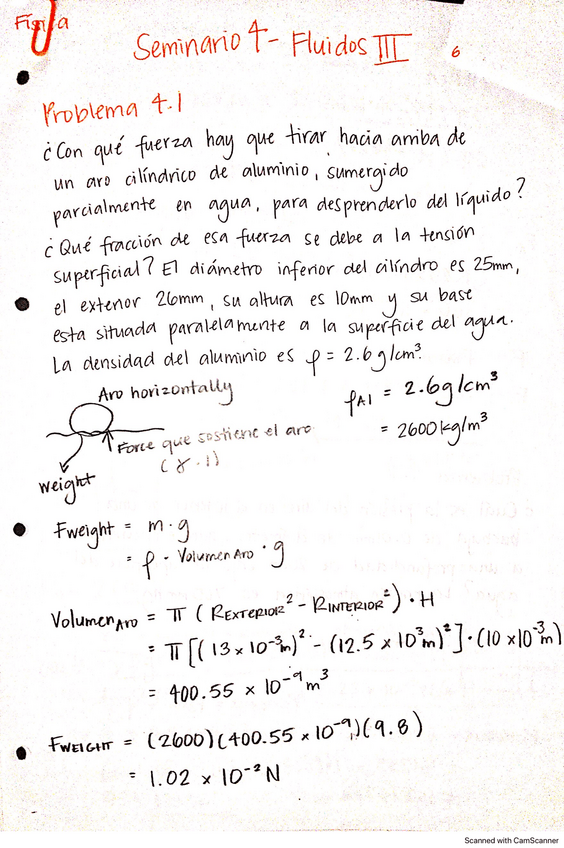 Física
Seminario 4 - Fluidos III
6
Problema 4.1
¿Con qué fuerza hay que tirar hacia arriba de
un aro cilíndrico de aluminio, sumergido
parcialmente en agua, para desprenderlo del líquido?
¿Qué fracción de esa fuerza se debe a la tensión
superficial? El diámetro inferior del cilíndro es 25mm,
el exterior 26mm, su altura es 10mm y su base
esta situada paralelamente a la superficie del agua.
La densidad del aluminio es ρ = 2.6 g/cm³.
Aro horizontally
ρAl = 2.6g/cm³
= 2600 kg/m³
Force que sostiene el aro
(γ · l)
weight
Fweight = m · g
= ρ · Volumen Aro · g
Volumen ARO = π (REXTERIOR² - RINTERIOR²) · H
= π [(13 × 10⁻³m)² - (12.5 × 10³m)²] · (10 × 10⁻³m)
= 400.55 × 10⁻⁹ m³
FWEIGHT = (2600)(400.55 × 10⁻⁹)(9.8)
= 1.02 × 10⁻² N
Scanned with CamScanner